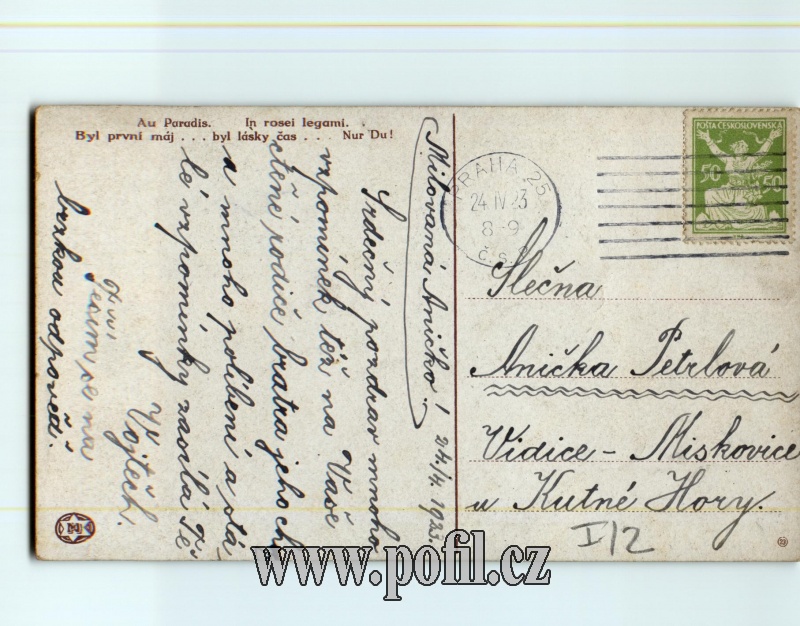 Au Paradis. In rosei legami.
Byl první máj . . . byl lásky čas . . . Nur Du!
Milovaná Aničko! 24/4. 1923.
Srdečný pozdrav mnoho
vzpomínek též na Vaše
ctěné rodiče bratra jeho ch
a mnoho políbení a stá-
lé vzpomínky zasílá Tě
Vojtěch.
Těším se na
brzkou odpověď.
PRAHA 25
24 IV 23
8-9
Č.S.P.
POŠTA ČESKOSLOVENSKÁ
50 50
Slečna
Anička Petrlová
Vidice - Miskovice
u Kutné Hory.
I/2
www.pofil.cz